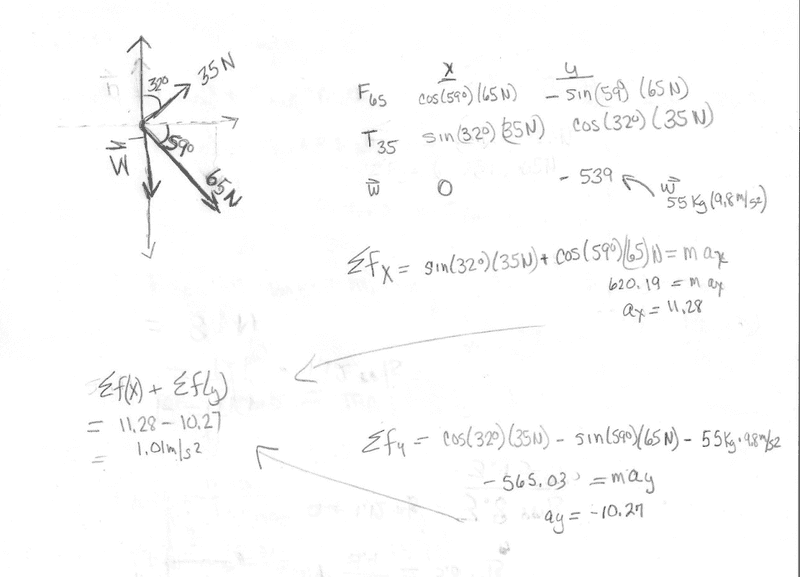 32° 35N
n
59°
W
65N
x y
F65 cos(59°)(65N) - sin(59°)(65N)
T35 sin(32°)(35N) cos(32°)(35N)
W 0 - 539 W
55kg(9.8m/s2)
Σfx = sin(32°)(35N) + cos(59°)(65)N = max
620.19 = max
ax = 11.28
Σf(x) + Σf(y)
= 11.28 - 10.27
= 1.01m/s2
Σfy = cos(32°)(35N) - sin(59°)(65N) - 55kg·9.8m/s2
- 565.03 = may
ay = -10.27